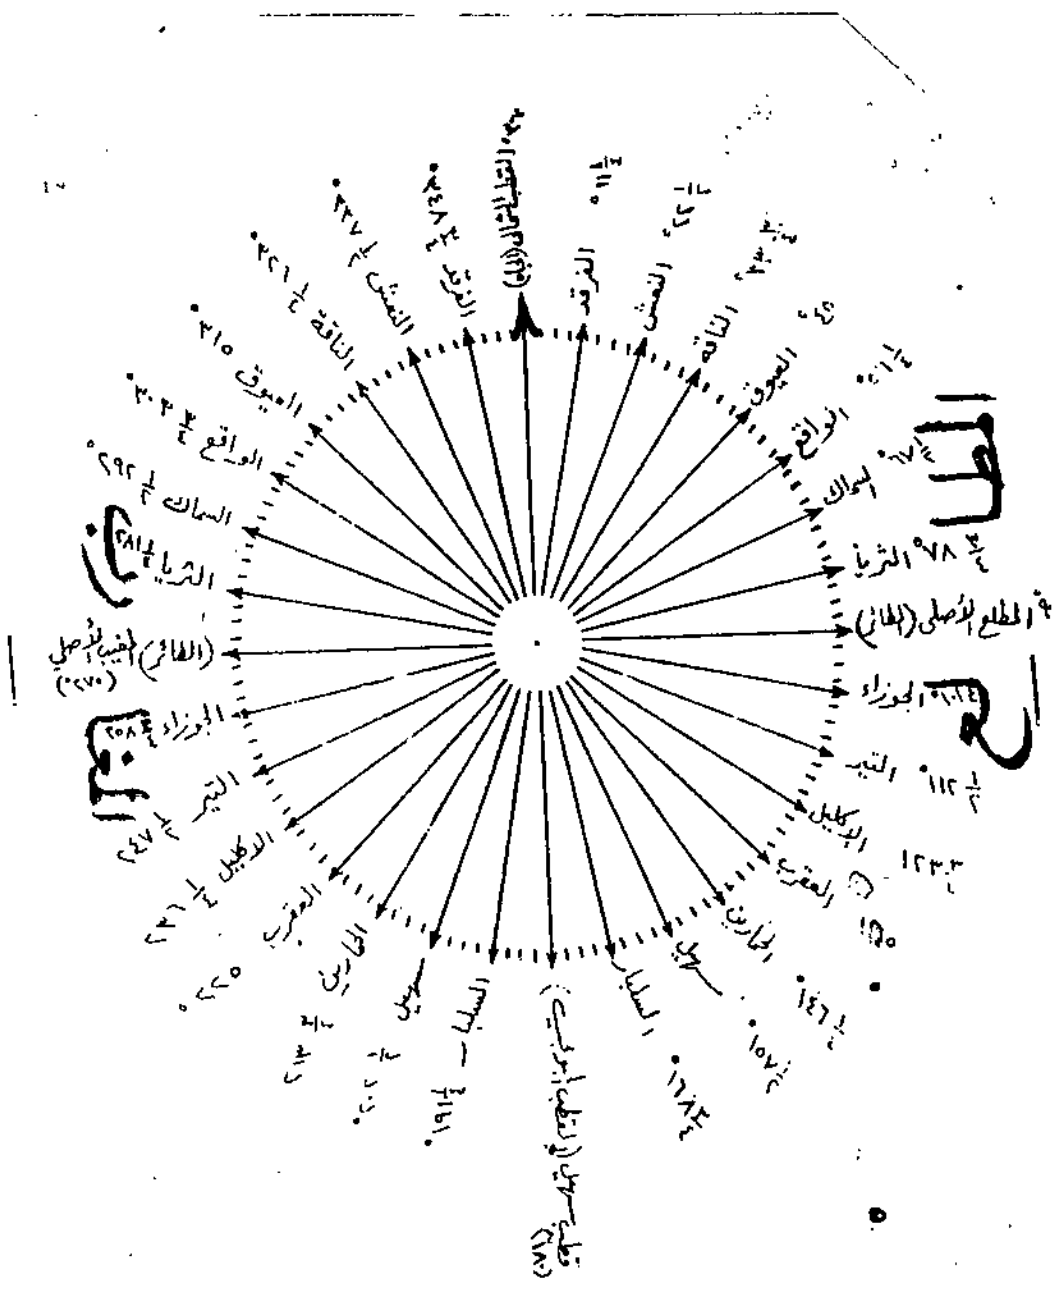 الفرقد ١١ ١/٤°
النعش ٢٢ ١/٢°
الناقة ٣٣ ٣/٤°
العيوق ٤٥°
الواقع
السماك ٦٧ ١/٢°
الثريا ٧٨ ٣/٤°
المطلع الأصلي (الطائر) ٩٠°
الجوزاء
التير ١١٢ ١/٢°
الاكليل ١٢٣ ٣/٤
العقرب
الحمارين ١٤٦ ١/٤°
سهيل ١٥٧ ١/٢°
السلبار ١٦٨ ٣/٤°
قطب سهيل (١٨٠°)
السلبا – ١٩١ ١/٤°
سهيل ٢٠٢ ١/٢°
الحمارين ٢١٣ ٣/٤
العقرب ٢٢٥°
الاكليل ٢٣٦ ١/٤
التير ٢٤٧ ١/٢
الجوزاء ٢٥٨ ٣/٤
(الطائر) المغيب الأصلي
(٢٧٠°)
الثريا
السماك ٢٩٢ ١/٢°
الواقع ٣٠٣ ٣/٤°
العيوق ٣١٥°
الناقة ٣٢٦ ١/٤°
النعش ٣٣٧ ١/٢°
الفرقد ٣٤٨ ٣/٤°